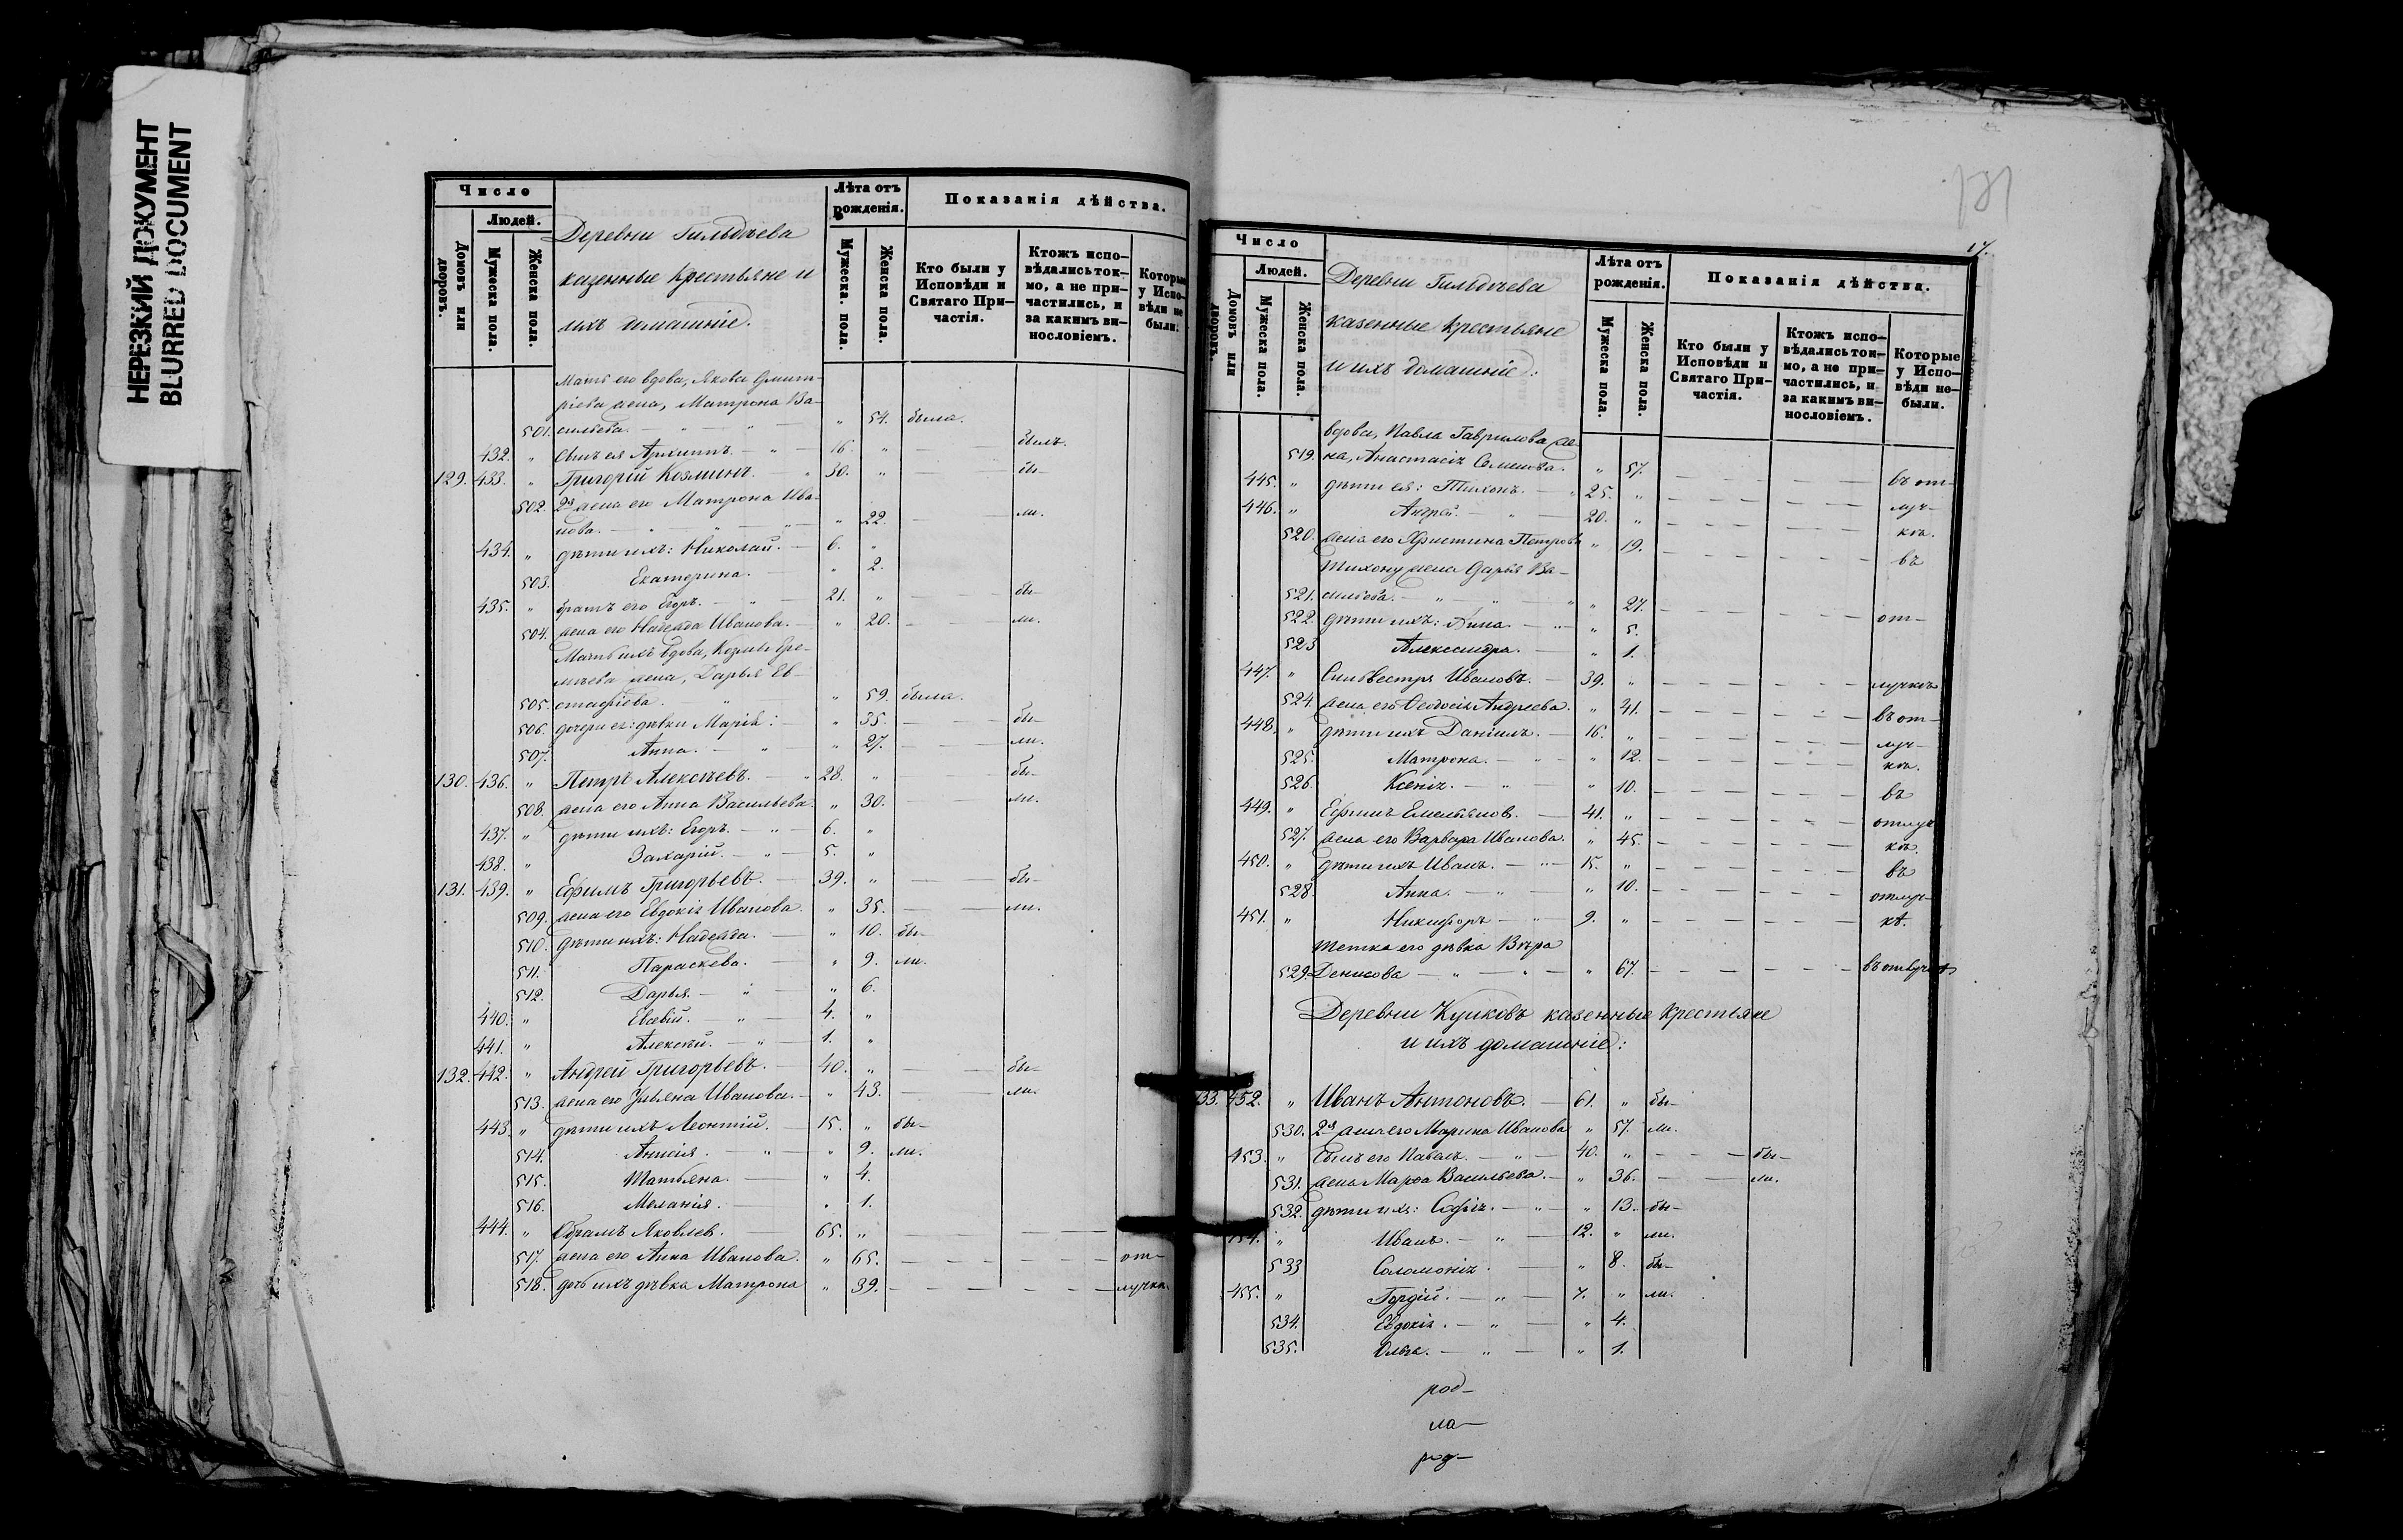 НЕРЕЗКИЙ ДОКУМЕНТ
BLURRED DOCUMENT
Число
Людей.
Домовъ или дворовъ.
Мужеска пола.
Женска пола.
Деревни Гильдѣева
казенные крестьяне и
ихъ домашніе.
Лѣта отъ рожденія.
Мужеска. пола.
Женска пола.
Показанія дѣйства.
Кто были у Исповѣди и Святаго Причастія.
Ктожъ исповѣдались токмо, а не причастились, и за какимъ винословіемъ.
Которые у Исповѣди не были.
Мать его вдова, Якова Дмит-
ріева жена, Матрона Ва-
501. сильева. — " — " — " 54. была.
432. " Сынъ ея Архиппъ. — " — 16. " — — былъ.
129. 433. " Григорій Козминъ. — " 30. " — — бы-
502. 2я жена его Матрона Ива-
нова. — " — " — " 22. — — ли.
434. " дѣти ихъ: Николай. — 6. "
503. Екатерина. — " 2.
435. " братъ его Егоръ. — " — 21. " — — бы-
504. жена его Надежда Иванова. — " 20. — — ли.
Мать ихъ вдова, Козмы Ере-
мѣева жена, Дарья Ев-
505. стафіева. " " 59. была.
506. дочери ея: дѣвки Марія: — " 35. — — бы-
507. Анна. — " " 27. — — ли.
130. 436. " Петръ Алексѣевъ. — " 28. " — — бы-
508. жена его Анна Васильева. " 30. — — ли.
437. " дѣти ихъ: Егоръ. — " — 6. "
438. " Захарій. — " — 5. "
131. 439. " Ефимъ Григорьевъ. — 39. " — — бы-
509. жена его Евдокія Иванова. " 35. — — ли.
510. дѣти ихъ: Надежда. — " 10. бы-
511. Параскева. — " 9. ли.
512. Дарья. — " — " 6.
440. " Евсевій. — " — 4. "
441. " Алексѣй. — " — 1. "
132. 442. " Андрей Григорьевъ. — 40. " — — бы-
513. жена его Ульяна Иванова. — " 43. — — ли.
443. " дѣти ихъ Леонтій. — 15. " бы-
514. Анисія. — " — " 9. ли.
515. Татьяна. — " 4.
516. Меланія. — " 1.
444. " Абрамъ Яковлев. — 65. " — — —
517. жена его Анна Иванова. " 65. — — — от-
518. дочь ихъ дѣвка Матрона " 39. — — — лучкѣ.
17.
Число
Людей.
Домовъ или дворовъ.
Мужеска пола.
Женска пола.
Деревни Гильдѣева
казенные крестьяне
и ихъ домашніе:
Лѣта отъ рожденія.
Мужеска пола.
Женска пола.
Показанія дѣйства.
Кто были у Исповѣди и Святаго Причастія.
Ктожъ исповѣдались токмо, а не причастились, и за какимъ винословіемъ.
Которые у Исповѣди не были.
вдова, Павла Гаврилова же-
519. на, Анастасія Семенова. " 57. — — — въ от-
445. " дѣти ея: Тихонъ. — " 25. " — — — луч-
446. " Андрей. — " — 20. " — — — кѣ.
520. жена его Христина Петрова " 19. — — — въ
Тихону жена Дарья Ва-
521. сильева. — " — " " 27. — — — от-
522. дѣти ихъ: Анна. — " — " 5.
523 Александра. — " 1.
447. " Сильвестръ Ивановъ. — 39. " — — — лучкѣ
524. жена его Ѳеодосія Андреева. " 41. — — — въ от-
448. " дѣти ихъ Даніилъ. — 16. " — — — луч-
525. Матрона. — " — " 12. — — — кѣ.
526. Ксенія. — " — " 10. — — — въ
449. " Ефимъ Емельянов. — 41. " — — — отлуч
527. жена его Варвара Иванова. " 45. — — — кѣ.
450. " дѣти ихъ Иванъ. — " — 15. " — — — въ
528. Анна. — " — " 10. — — — отлуч-
451. " Никифоръ — " — 9. " — — — кѣ.
тетка его дѣвка Вѣра
529. Денисова — " — " — " 67. — — — въ отлучкѣ
Деревни Куиковъ казенные крестьяне
и ихъ домашніе:
133. 452. " Иванъ Антоновъ. — 61. " бы-
530. 2я жена его Марина Иванова " 57. ли.
453. " Сынъ его Павелъ. — " — 40. " — — бы-
531. жена Марѳа Васильева. — " 36. — — ли.
532. дѣти ихъ: Софія. — " — " 13. бы-
454. " Иванъ. — " — 12. " ли.
533 Саломонія. — " 8. бы-
455. " Гордій. — " — 7. " ли.
534. Евдокія. — " — " 4.
535. Ольга. — " — " 1.
род-
ла-